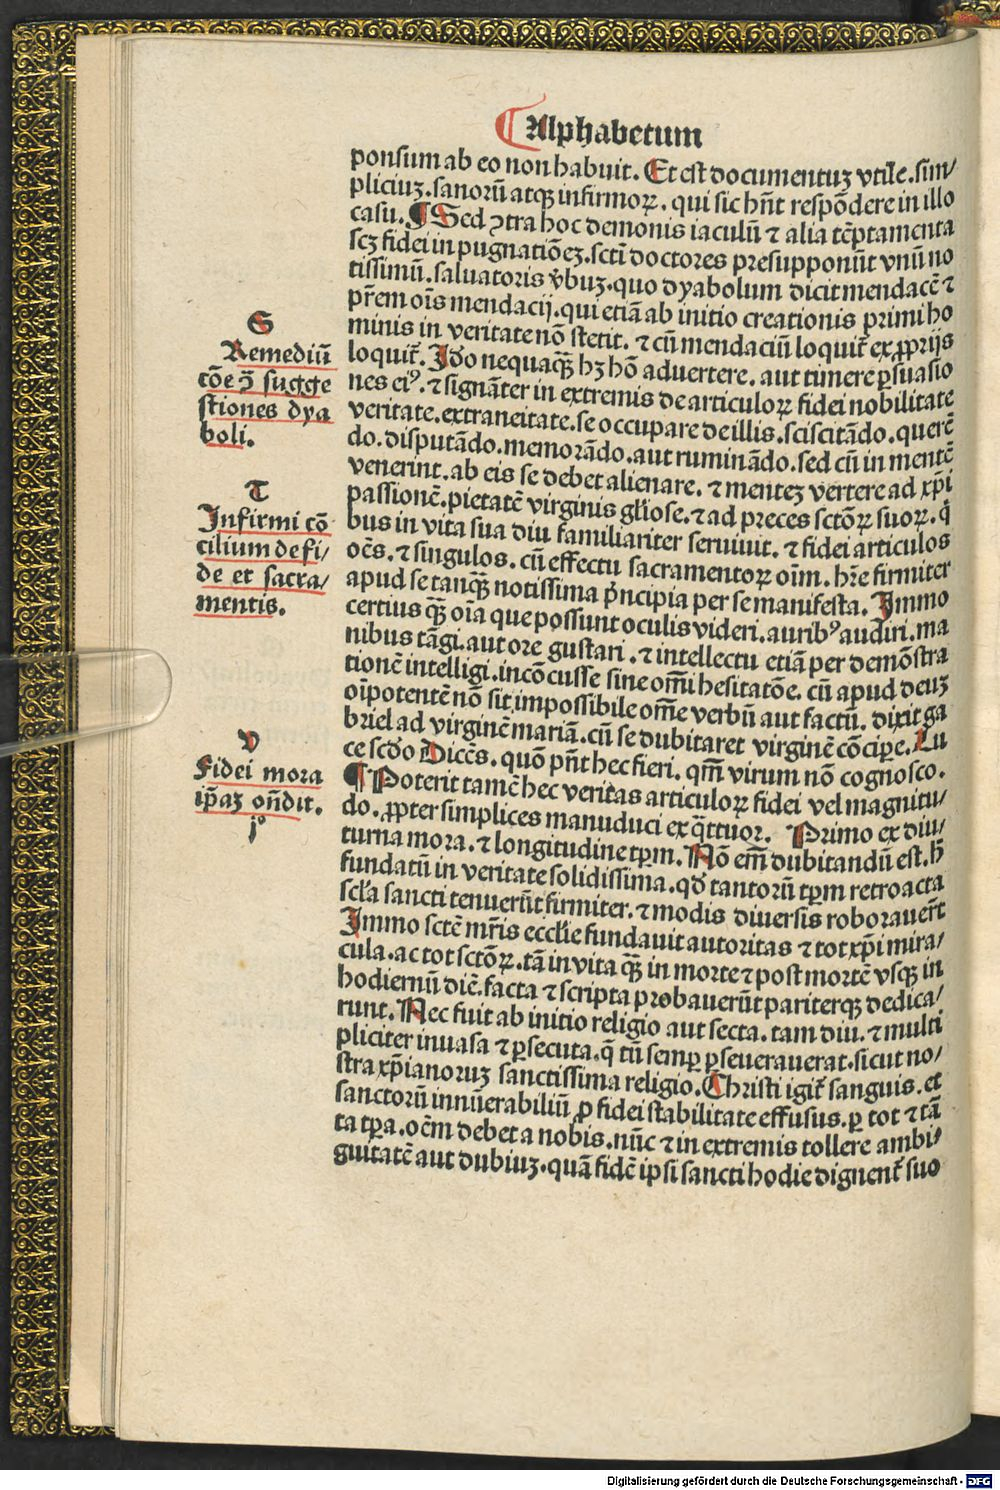 Alphabetum
ponsum ab eo non habuit. Et est documentuꝫ vtile. sim/
pliciuꝫ. sanoꝝ atqꝫ infirmoꝝ. qui sic hñt respõdere in illo
casu. ¶ Sed ↄtra hoc demonis iaculũ ⁊ alia tẽptamenta
scꝫ fidei in pugnatiõeꝫ. scti doctores presupponũt vnũ no
tissimũ. saluatoris v̾buꝫ. quo dyabolum dicit mendacẽ ⁊
pr̃em oĩs mendacij. qui etiã ab initio creationis primi ho
minis in veritate nõ stetit. ⁊ cũ mendaciũ loquit̃ ex ꝓprijs
loquit̃. Jdo nequaqꝫ̃ hꝫ hõ aduertere. aut timere ꝑsuasio
nes eiꝰ. ⁊ signãter in extremis de articuloꝝ fidei nobilitate
veritate. extraneitate. se occupare de illis. sciscitãdo. querẽ
do. disputãdo. memorãdo. aut ruminãdo. sed cũ in mentẽ
venerint. ab eis se debet alienare. ⁊ menteꝫ vertere ad xp̃i
passionẽ. pietatẽ virginis gl̃iose. ⁊ ad preces sctõꝝ suoꝝ. q̃
bus in vita sua diu familiariter seruiuit. ⁊ fidei articulos
oẽs. ⁊ singulos. cũ effectu sacramentoꝝ oĩm. hr̃e firmiter
apud se tanqꝫ̃ notissima p̃ncipia per se manifesta. Jmmo
certius qꝫ̃ oĩa que possunt oculis videri. auribꝰ audiri. ma
nibus tãgi. aut ore gustari. ⁊ intellectu etiã per demõstra
tionẽ intelligi. incõcusse sine om̃i hesitatõe. cũ apud deuꝫ
oĩpotentẽ nõ sit impossibile om̃e verbũ aut factũ. dixit ga
briel ad virginẽ mariã. cũ se dubitaret virginẽ cõciꝑe. Lu
ce scdo Dicẽs. quõ pñt hec fieri. qm̃ virum nõ cognosco.
¶ Poterit tamẽ hec veritas articuloꝝ fidei vel magnitu/
do. ꝓpter simplices manuduci ex q̃ttuor. Primo ex diu/
turna mora. ⁊ longitudine tꝑm. Nõ em̃ dubitandũ est. h̃
fundatũ in veritate solidissima. qđ tantorũ tꝑm retroacta
scl̃a sancti tenuerũt firmiter. ⁊ modis diuersis roborauer̃t
Jmmo sctẽ mr̃is eccl̃ie fundauit autoritas ⁊ tot xp̃i mira/
cula. ac tot sctõꝝ. tã in vita qꝫ̃ in morte ⁊ post mortẽ vsqꝫ in
hodiernũ diẽ. facta ⁊ scripta probauerũt pariterqꝫ dedica/
runt. Nec fuit ab initio religio aut secta. tam diu. ⁊ multi
pliciter inuasa ⁊ ꝑsecuta. q̃ tñ semꝑ ꝑseuerauerat. sicut no/
stra xp̃ianoruꝫ sanctissima religio. Christi igit̃ sanguis. et
sanctorũ innũerabiliũ ꝓ fidei stabilitate effusus. ꝑ tot ⁊ tã
ta tꝑa. oẽm debet a nobis. nũc ⁊ in extremis tollere ambi/
guitatẽ aut dubiuꝫ. quã fidẽ ipsi sancti hodie dignent̃ suo
S
Remediũ
cõe ↄ̃ sugge
stiones dya
boli.
T
Infirmi cõ
cilium de fi/
de et sacra/
mentis.
V
Fidei mora
ip̃aꝫ oñdit.
jº
Digitalisierung gefördert durch die Deutsche Forschungsgemeinschaft - DFG